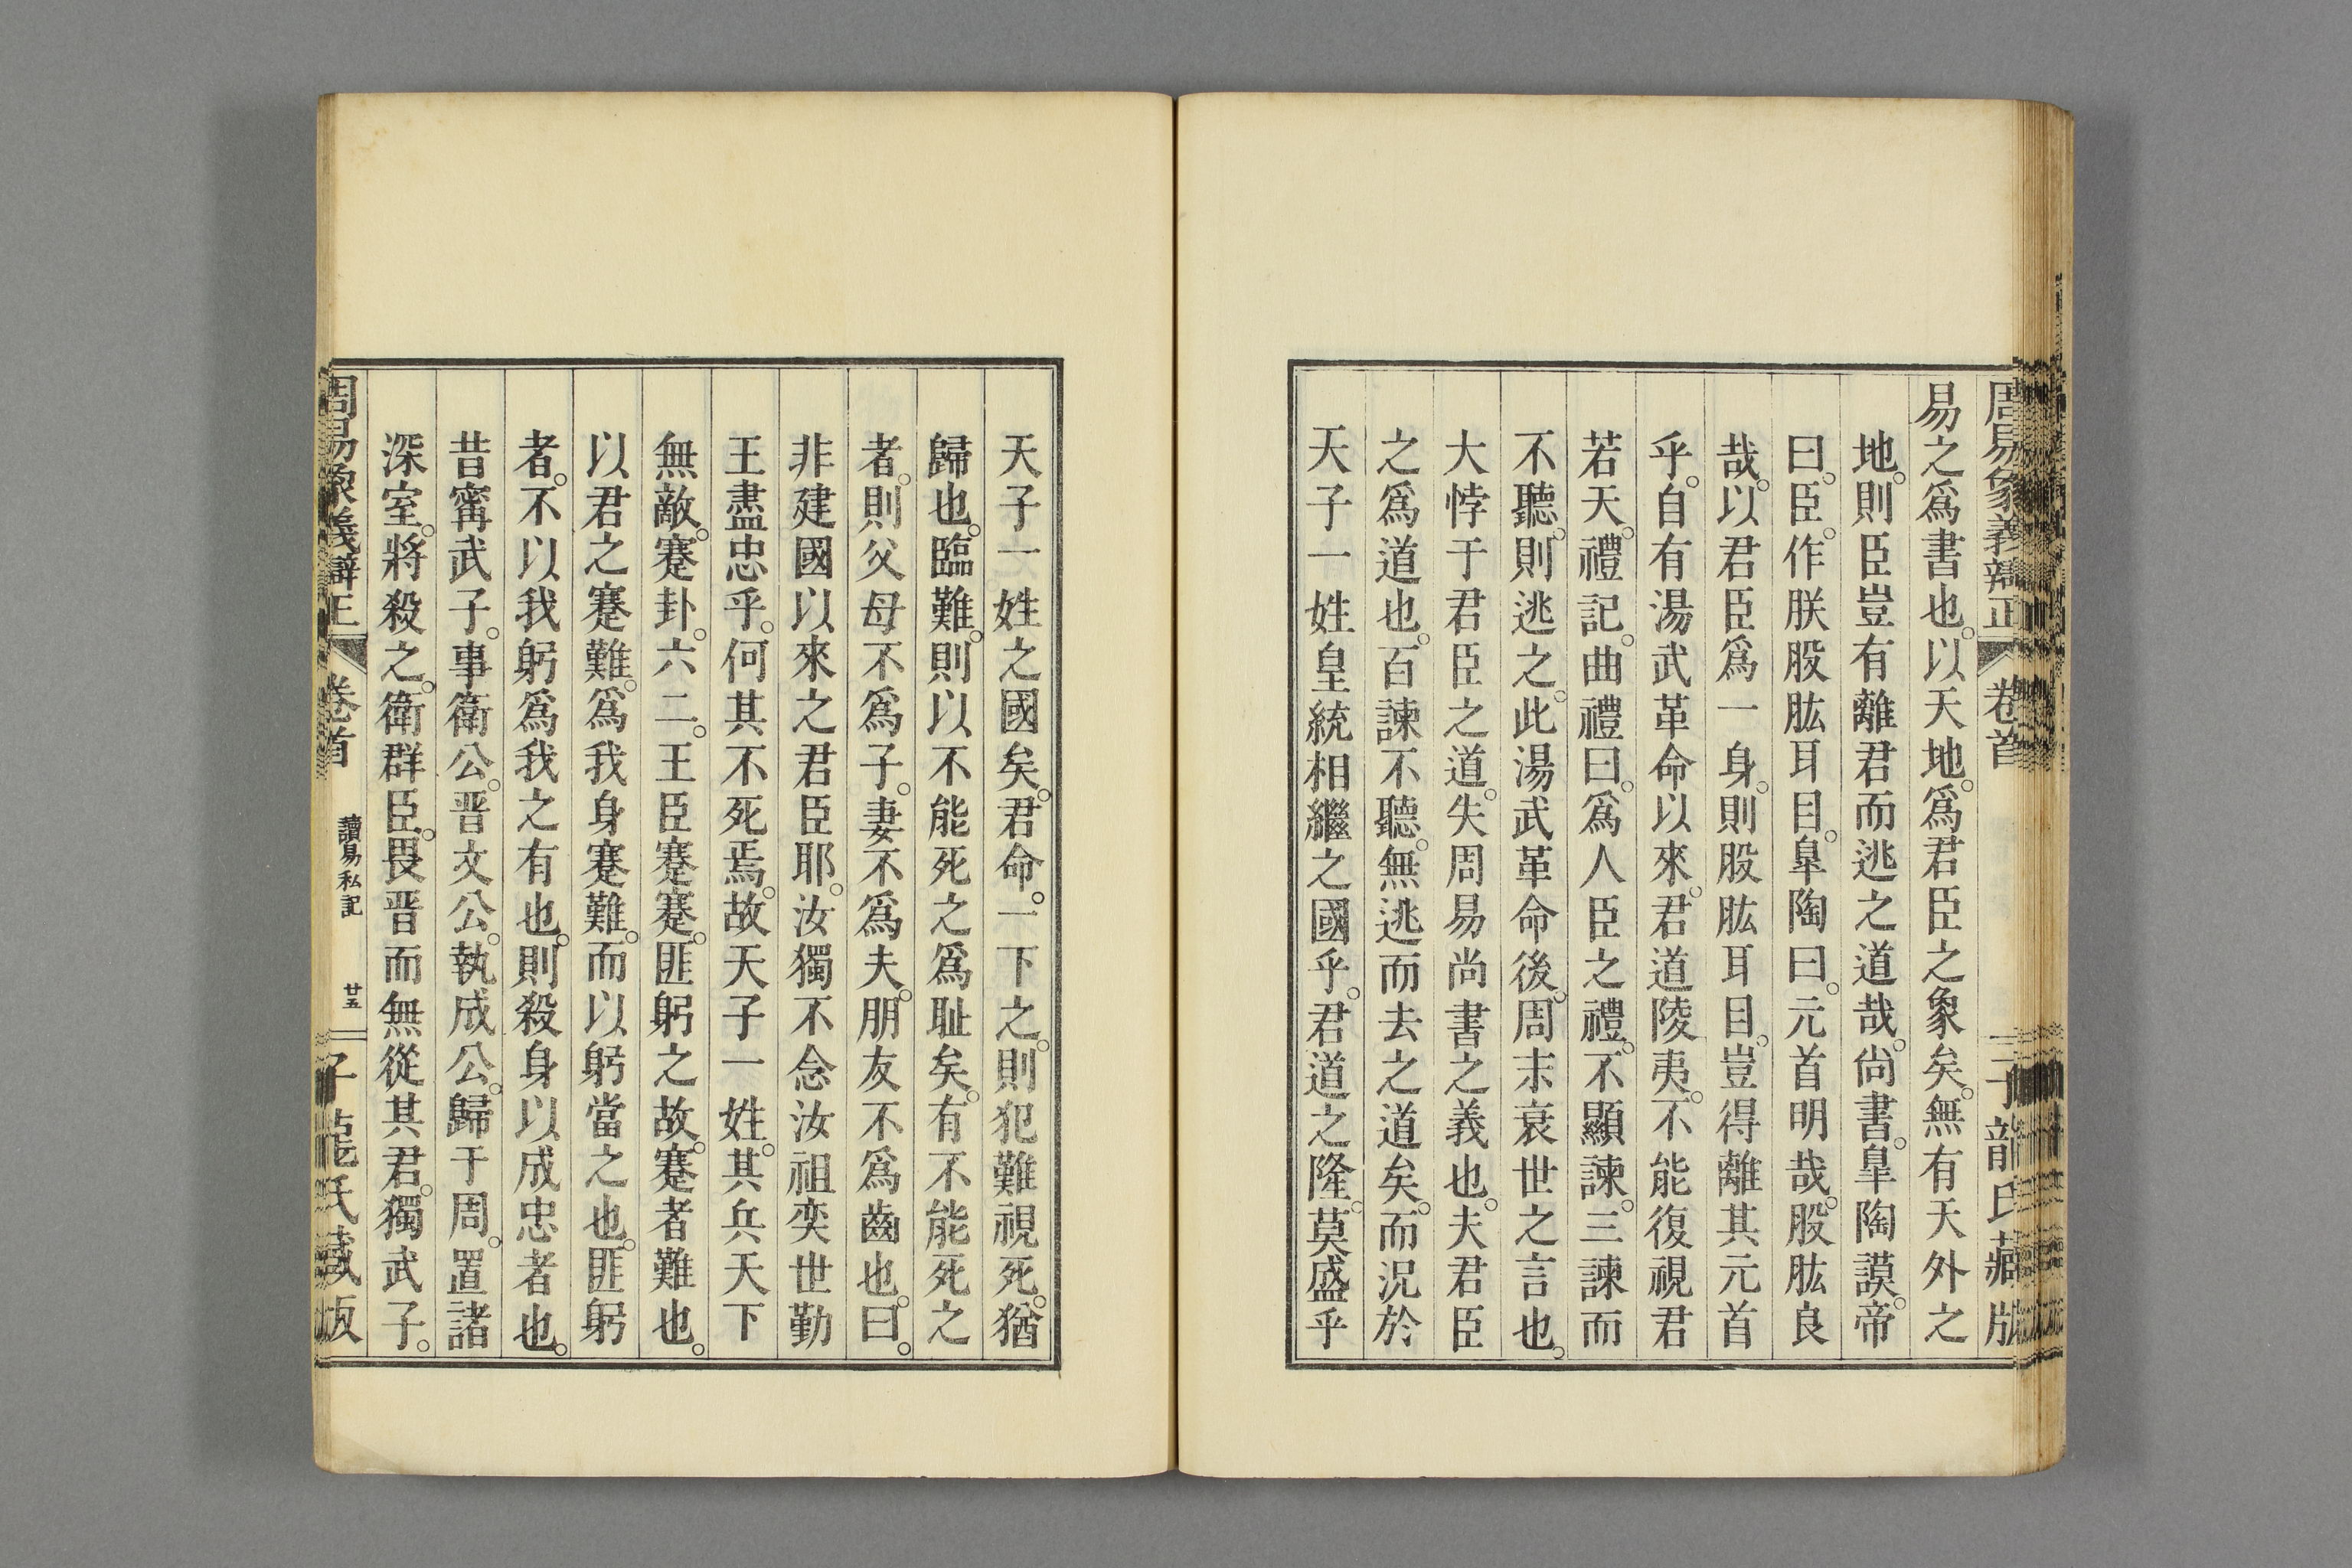 周易象義辯正 卷首 子龍氏藏版
易之爲書也。以天地。爲君臣之象矣。無有天外之
地。則臣豈有離君而逃之道哉。尙書。皐陶謨。帝
曰。臣。作朕股肱耳目。皐陶曰。元首明哉。股肱良
哉。以君臣爲一身。則股肱耳目。豈得離其元首
乎。自有湯武革命以來。君道陵夷。不能復視君
若天。禮記。曲禮曰。爲人臣之禮。不顯諫。三諫而
不聽。則逃之。此湯武革命後。周末衰世之言也。
大悖于君臣之道。失周易尚書之義也。夫君臣
之爲道也。百諫不聽。無逃而去之道矣。而況於
天子一姓皇統相繼之國乎。君道之隆。莫盛乎
天子一姓之國矣。君命。一下之。則犯難視死。猶
歸也。臨難。則以不能死之爲耻矣。有不能死之
者。則父母不爲子。妻不爲夫。朋友不爲齒也。曰。
非建國以來之君臣耶。汝獨不念汝祖奕世勤
王盡忠乎。何其不死焉。故天子一姓。其兵天下
無敵。蹇卦。六二。王臣蹇蹇。匪躬之故。蹇者難也。
以君之蹇難。爲我身蹇難。而以躬當之也。匪躬
者。不以我躬爲我之有也。則殺身以成忠者也。
昔甯武子。事衛公。晋文公。執成公。歸于周。置諸
深室。將殺之。衛群臣。畏晋而無從其君。獨武子。
周易象義辯正 卷首 讀易私記 廿五 子龍氏藏版